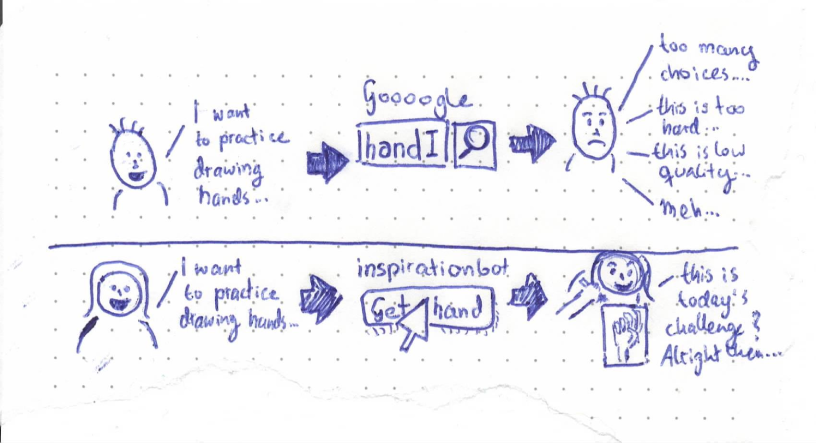 I want
to practice
drawing
hands...
Goooogle
handI
too many
choices....
this is too
hard...
this is low
quality...
meh...
I want
to practice
drawing hands...
inspirationbot
Get hand
this is
today's
challenge?
Alright then...